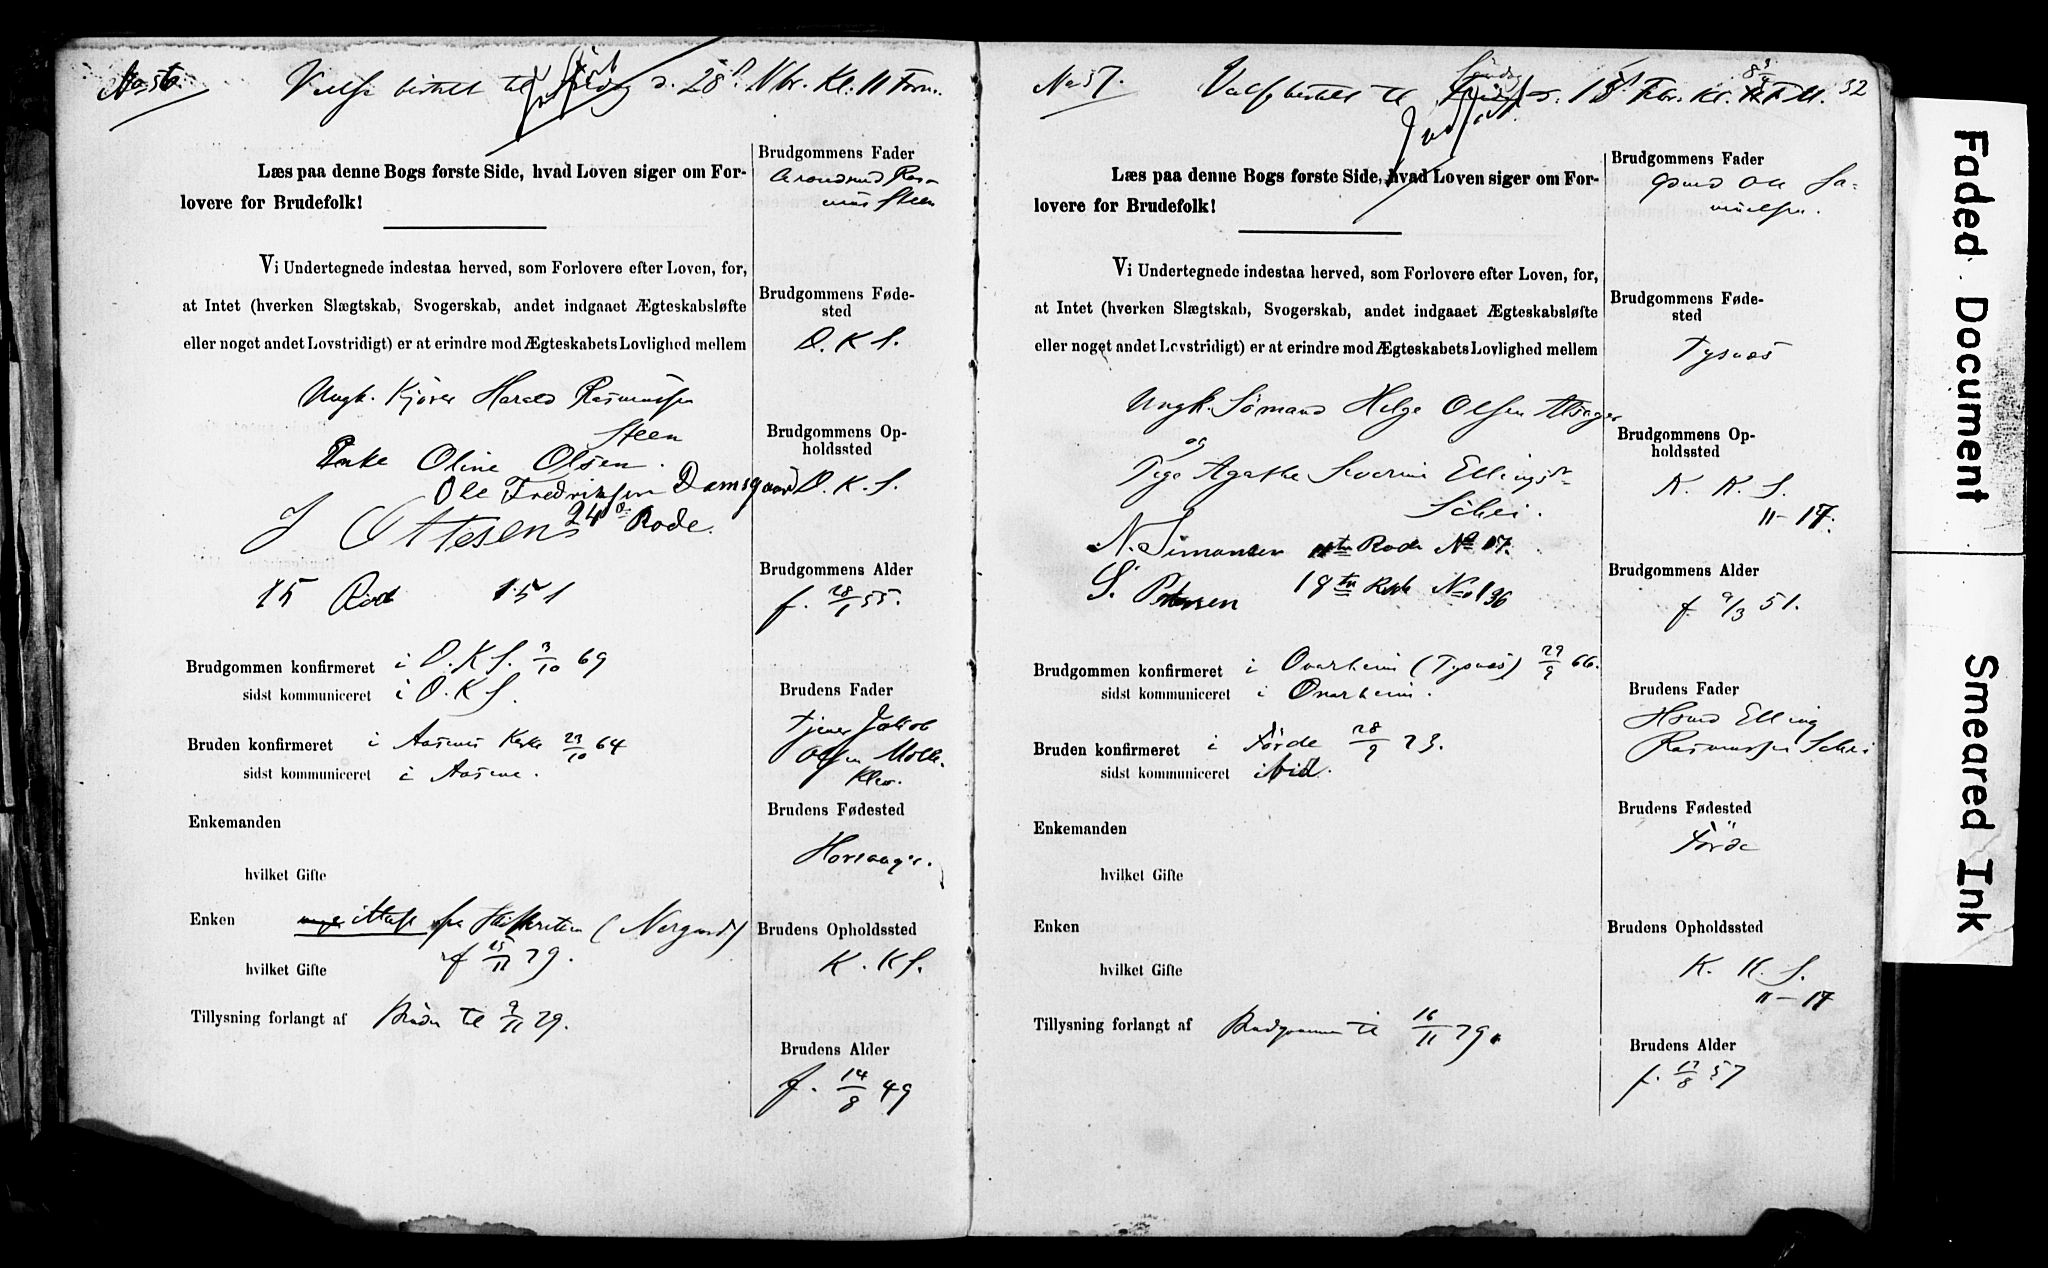 No 56.
Vielse bestilt til d. 28d Nbr. Kl. 11 Form.
Læs paa denne Bogs første Side, hvad Loven siger om For-
lovere for Brudefolk!
Vi Undertegnede indestaa herved, som Forlovere efter Loven, for,
at Intet (hverken Slægtskab, Svogerskab, andet indgaaet Ægteskabsløfte
eller noget andet Lovstridigt) er at erindre mod Ægteskabets Lovlighed mellem
Ungk. Kjører Harald Rasmussen
Steen
Enke Oline Olsen.
Ole Fredriksen Damsgaard
24de Rode.
J Ottesen
15 Rode 151
Brudgommen konfirmeret i D.K.S. 3/10 69
sidst kommuniceret i D.K.S.
Bruden konfirmeret i Aasene Kirke 23/10 64
sidst kommuniceret i Aasene.
Enkemanden
hvilket Gifte
Enken (Nergaard)
hvilket Gifte f 15/11 79.
Tillysning forlangt af Bruden til 9/11 79.
Brudgommens Fader
Ras-
mus Steen
Brudgommens Føde-
sted
D. K S.
Brudgommens Op-
holdssted
D. K. S.
Brudgommens Alder
f. 28/1 55.
Brudens Fader
Tjener Jakob
Olsen
Brudens Fødested
Brudens Opholdssted
K. K S.
Brudens Alder
f. 14/8 49
No 57.
Vielse bestilt til Søndag d. Febr. Kl. 8 3/4 F M.
32
Læs paa denne Bogs første Side, hvad Loven siger om For-
lovere for Brudefolk!
Vi Undertegnede indestaa herved, som Forlovere efter Loven, for,
at Intet (hverken Slægtskab, Svogerskab, andet indgaaet Ægteskabsløfte
eller noget andet Lovstridigt) er at erindre mod Ægteskabets Lovlighed mellem
Ungk. Sømand Helge Olsen Alsager
og
Pige Agathe Severine Ellingsdr
Schei.
N. Simonsen 11te Rode No 17.
S. Petersen 18te Rode No 136
Brudgommen konfirmeret i Ovarheim (Tysnæs) 29/9 66.
sidst kommuniceret i Ovarheim.
Bruden konfirmeret i Førde 28/9 73.
sidst kommuniceret ibid.
Enkemanden
hvilket Gifte
Enken
hvilket Gifte
Tillysning forlangt af Brudgommen til 16/11 79.
Brudgommens Fader
Gmd Ole Sa-
muelsen.
Brudgommens Føde-
sted
Tysnæs
Brudgommens Op-
holdssted
K. K. S.
11-17.
Brudgommens Alder
f 9/3 51.
Brudens Fader
Hsmd Elling
Rasmussen Schei
Brudens Fødested
Førde
Brudens Opholdssted
K. K. S.
11-17
Brudens Alder
f. 17/8 57
Faded Document
Smeared Ink